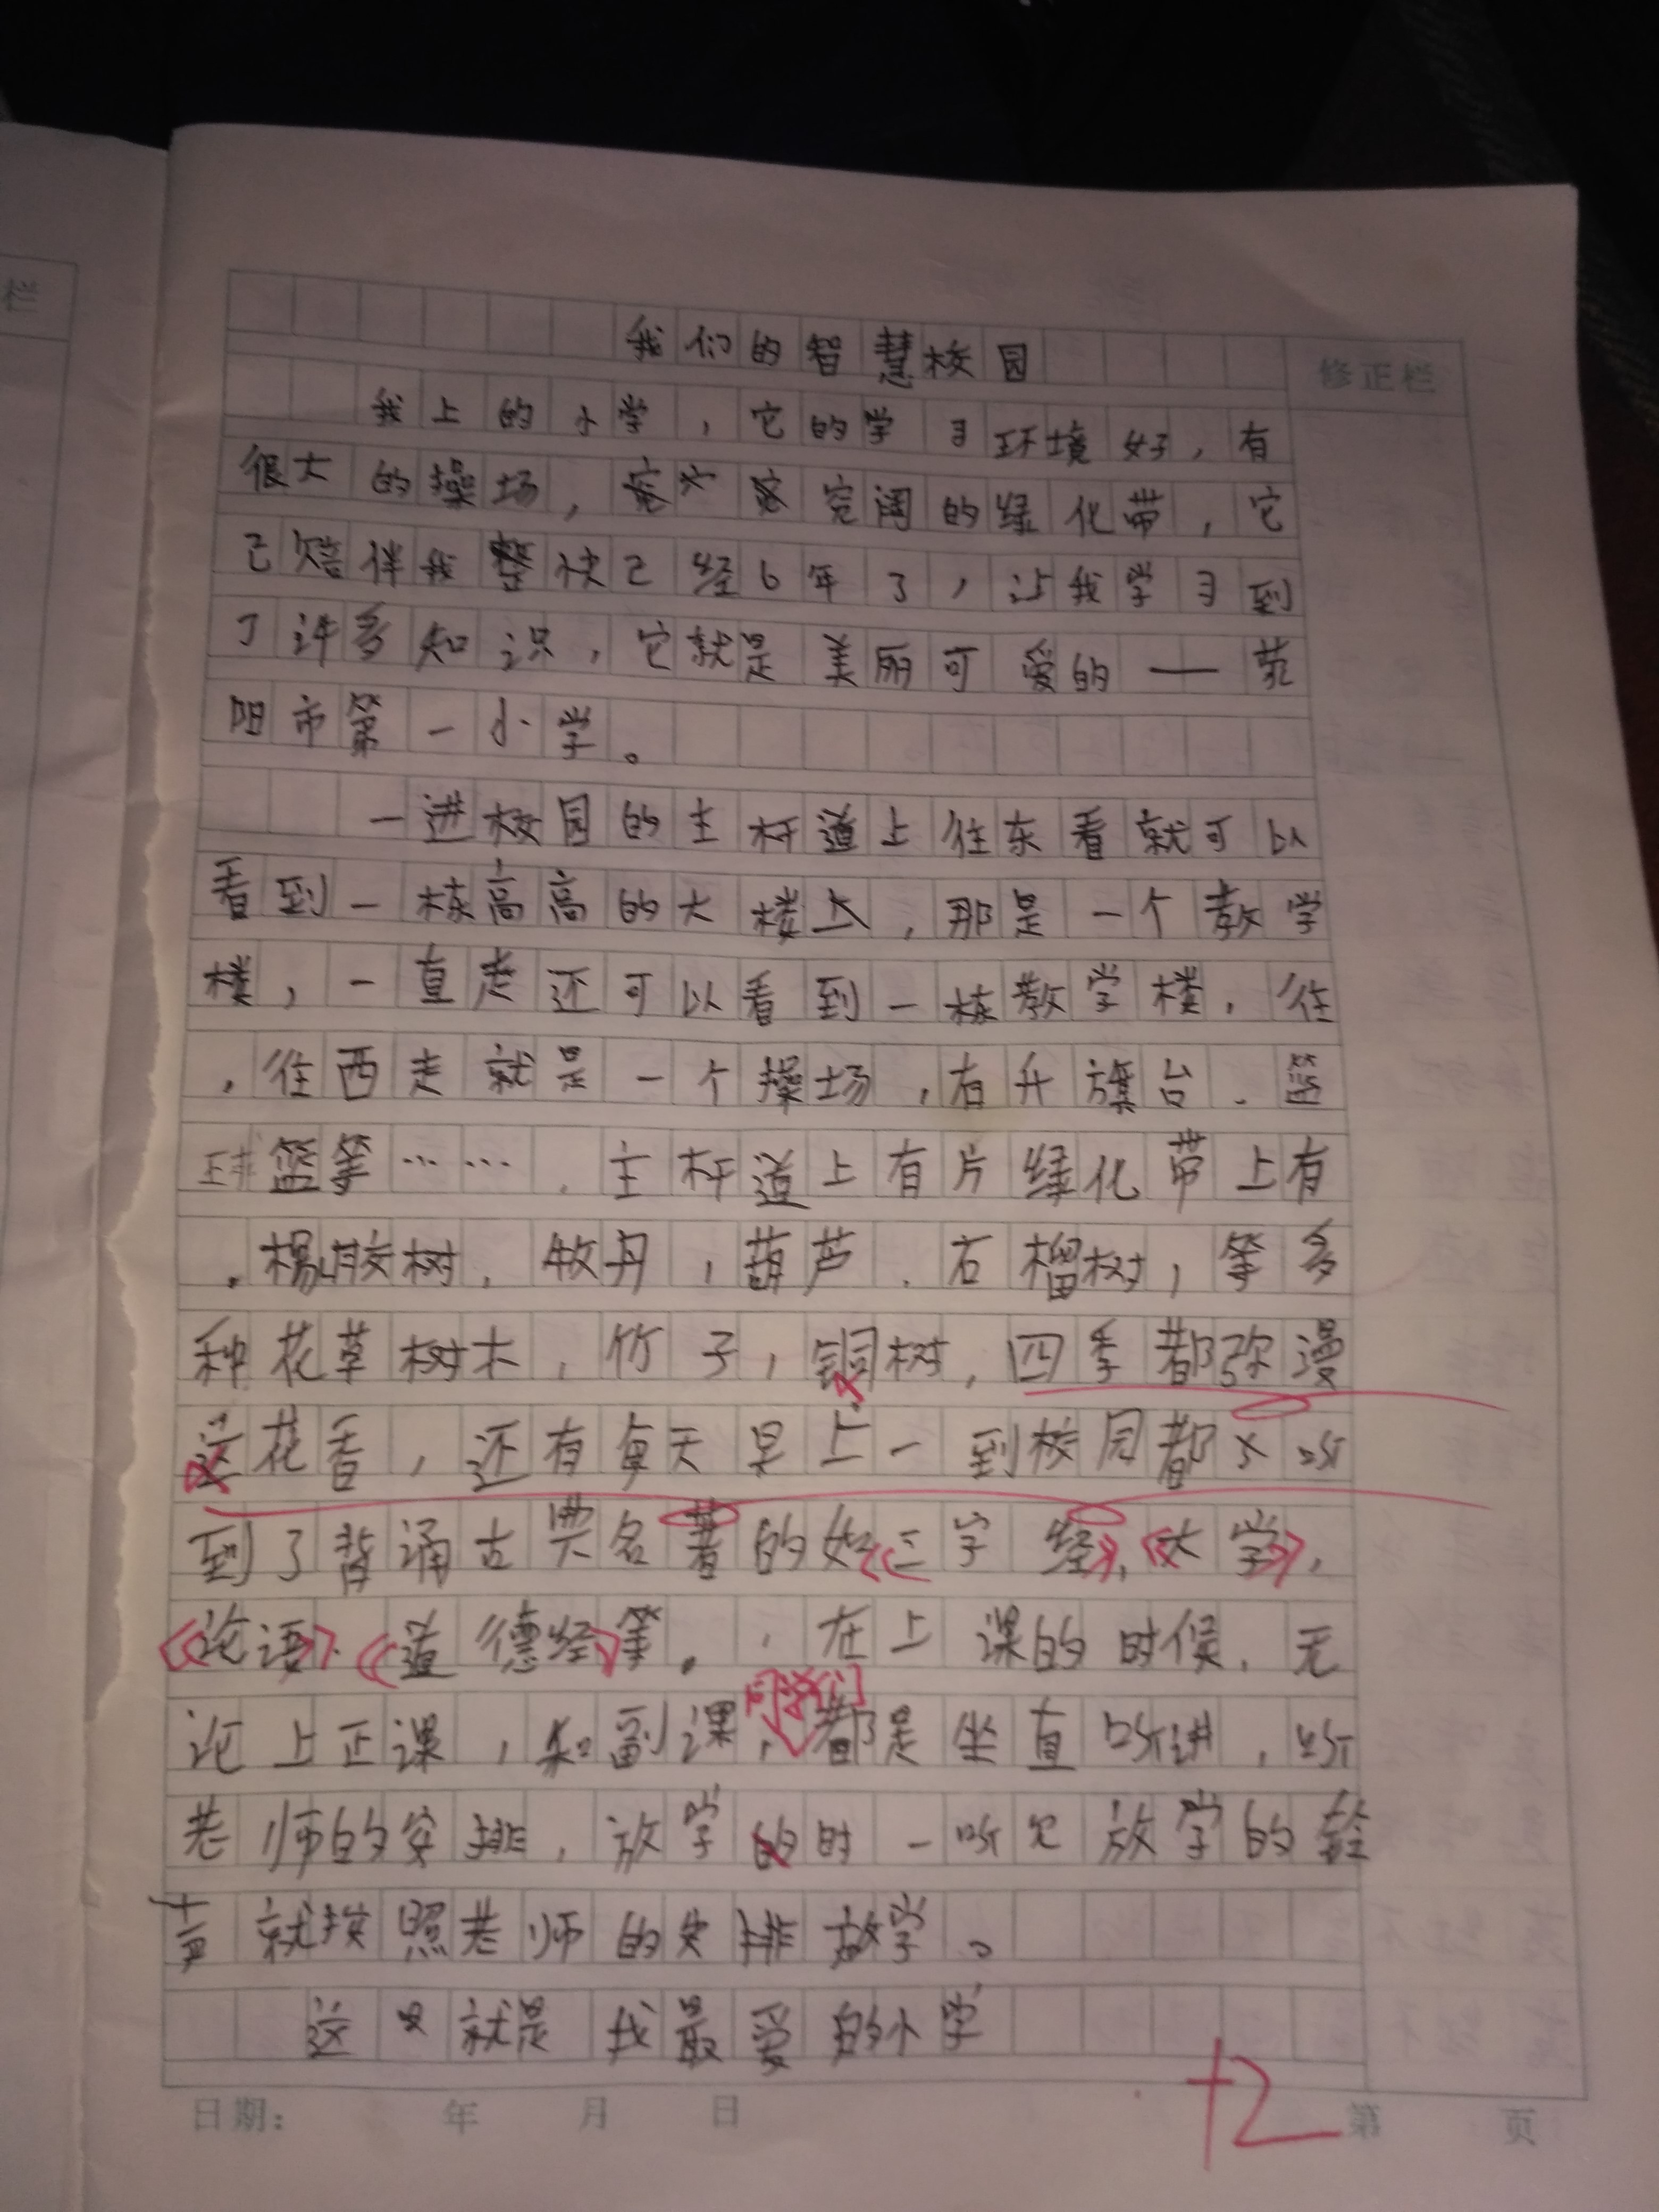 栏
我们的智慧校园
修正栏
我上的小学，它的学习环境好，有
很大的操场，宽阔的绿化带，它
已陪伴我整快已经6年了，让我学习到
了许多知识，它就是美丽可爱的——荥
阳市第一小学。
一进校园的主杆道上往东看就可以
看到一栋高高的大楼上，那是一个教学
楼，一直走还可以看到一栋教学楼，往
，往西走就是一个操场，有升旗台、篮
球篮等……．主杆道上有片绿化带上有
．杨胶树、牧丹，葫芦、石榴树，等多
种花草树木，竹子，铜树，四季都弥漫
这花香，还有每天早上一到校园都又听
到了背诵古典名著的如《三字经》，《大学》，
《论语》、《道德经》等。，在上课的时候，无
论上正课，和副课，同学们都是坐直听讲，听
老师的安排，放学的时一听见放学的铃
声就按照老师的安排放学。
这里就是我最爱的小学
+2
日期： 年 月 日 第 页